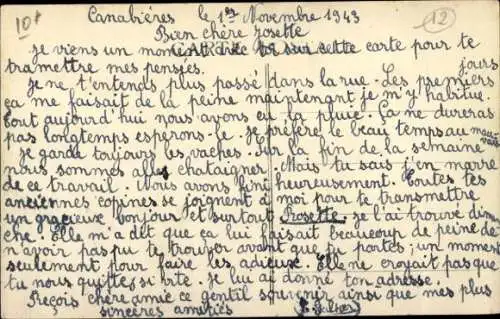 10f
12
Canabières le 1er Novembre 1943
Bien chère Josette
je viens un moment sur cette carte pour te
tramettre mes pensés.
je ne t'entends plus passé dans la rue. Les premiers jours
ça me faisait de la peine maintenant je m'y habitue.
Tout aujourd'hui nous avons eu la pluie. Ça ne dureras
pas longtemps esperons-le. je préfère le beau temps au mauvais
je garde toujours les vaches. Sur la fin de la semaine
nous sommes allés chataigner. Mais tu sais j'en marre
de ce travail. Nous avons fini heureusement. Toutes tes
anciennes copines se joignent à moi pour te transmettre
un gracieux bonjour et surtout Rosette. je l'ai trouvé dima
che. Elle m'a dit que ça lui faisait beaucoup de peine de
n'avoir pas pu te trouver avant que tu partes; un moment
seulement pour faire les adieux. Elle ne croyait pas que
tu nous quittes si vite. Je lui ai donné ton adresse.
Reçois chère amie ce gentil souvenir ainsi que mes plus
sincères amitiés